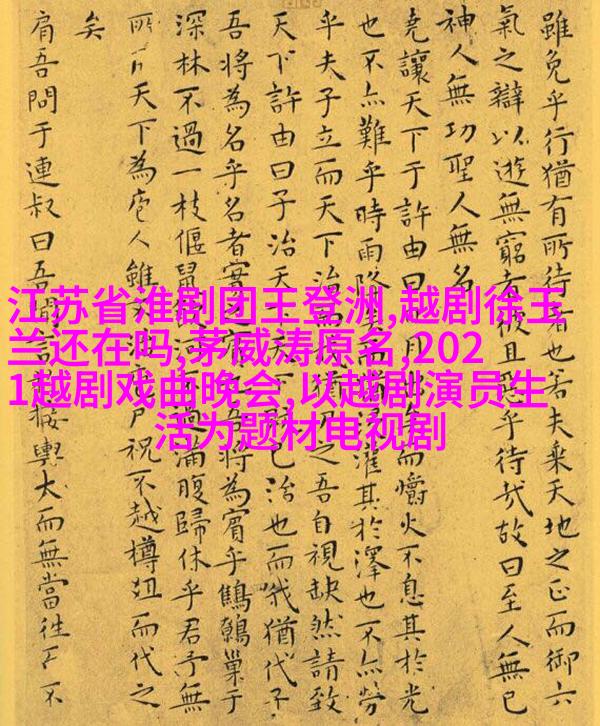 江苏省淮剧团王登洲,越剧徐玉
兰还在吗,茅威涛原名,202
1越剧戏曲晚会,以越剧演员生
活为题材电视剧
雖免乎行猶有所待者也若夫乘天地之正而御六
氣之辯以遊無窮者彼且惡乎待哉故曰至人無已
神人無功聖人無名
堯讓天下于許由曰月而爝火不息其於光
也不亦難乎時雨降浸灌其於澤也不亦勞
乎夫子立而天下治之吾自視缺然請致
天下許由曰子治天下天下已治也而我猶代子
吾將為名乎名者實之賓吾將為賓乎鷦鷯巢于
深林不過一枝偃鼠過滿腹歸休乎君予無
所天下為庖人雖不尸祝不越樽俎而代之
矣
肩吾問于連叔曰吾聞言接輿大而無當往而不